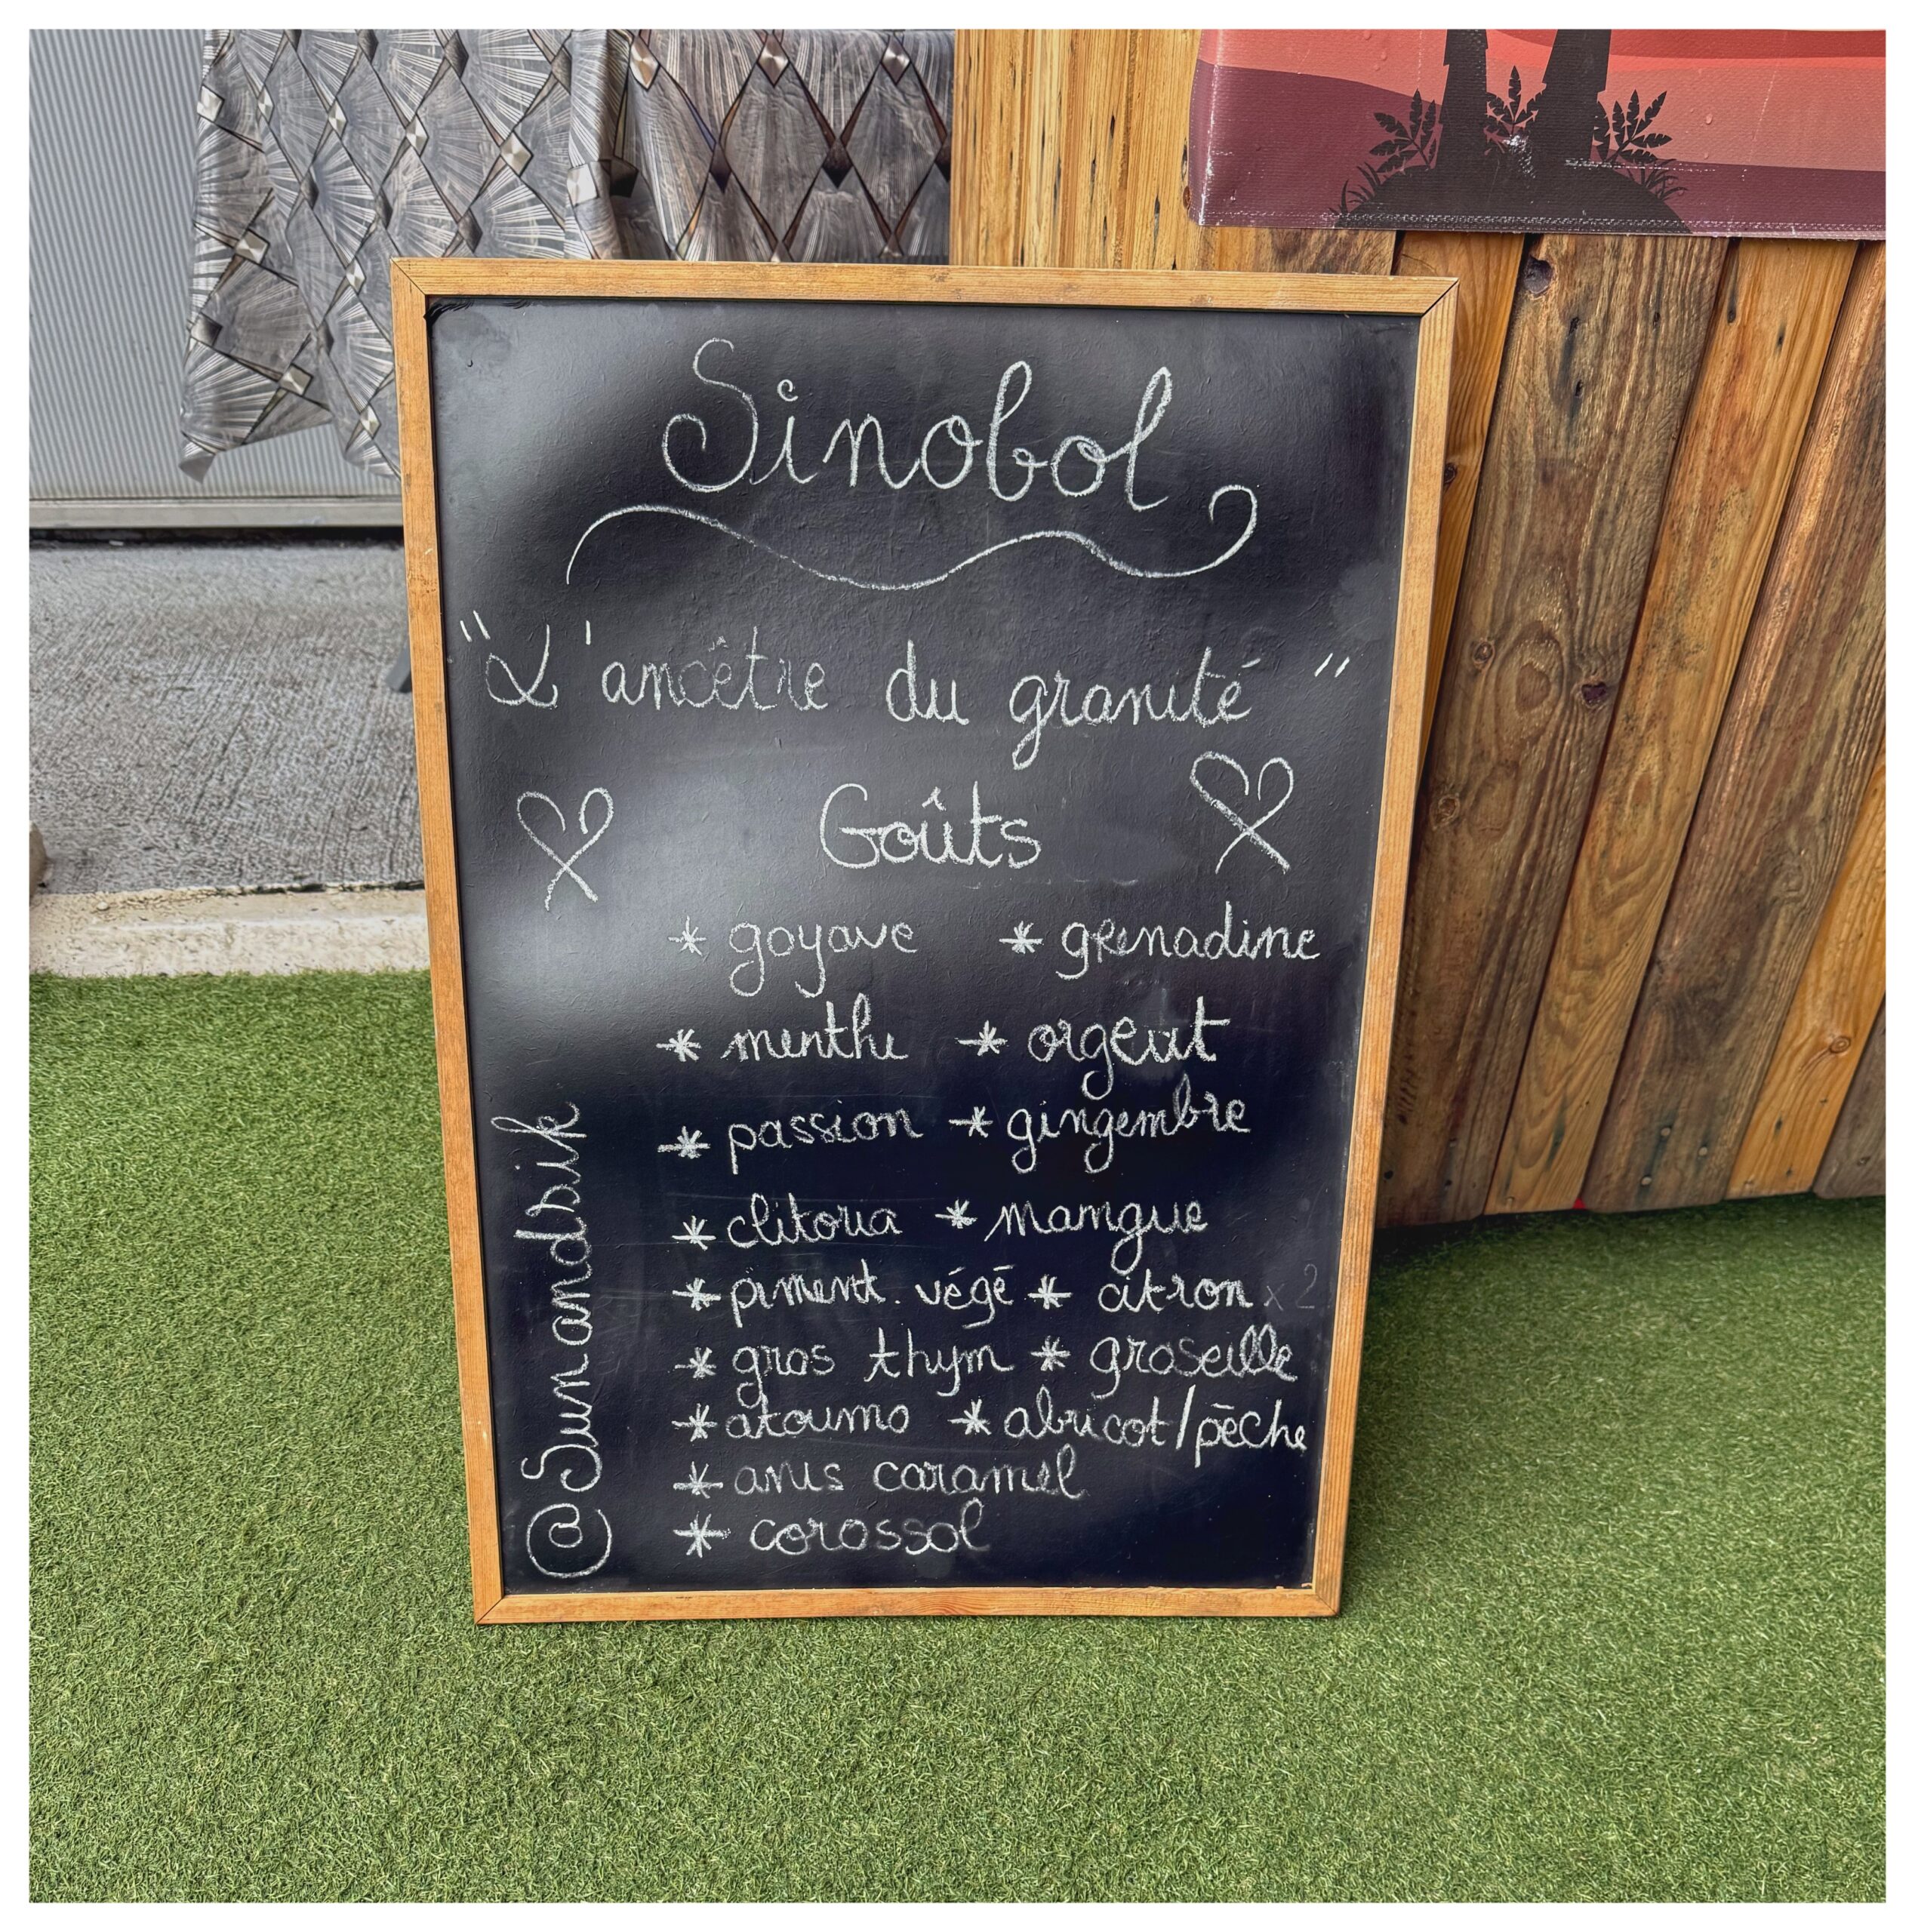 Sinobol
"L'ancêtre du granité"
Goûts
* goyave * grenadine
* menthe * orgeat
* passion * gingembre
* clitoria * mangue
* piment végé * citron x2
* gros thym * groseille
* atoumo * abricot/pêche
* anis caramel
* corossol
@Sunandbik